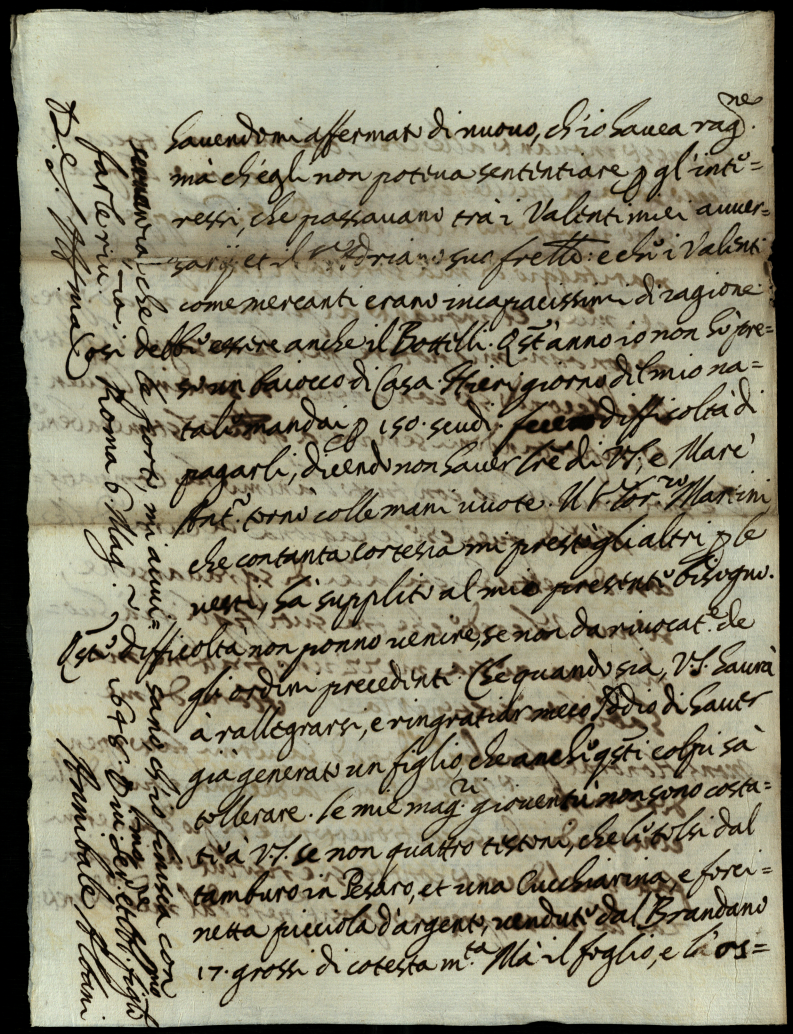 havendomi affermato di nuovo, ch'io havea rag.ne
mà ch'egli non poteva sententiare p gl'inte=
ressi, che passavano trà i Valenti miei auver=
sarij et il S.r Adriano suo fretto: e che i Valenti
come mercanti erano incapacissimi di ragione
così debb'essere anche il Bottilli. Qst'anno io non hò pre=
so un baiocco di Casa. Hieri giorno del mio na=
tale mandai p 150. scudi. fecero difficoltà di
pagarli, dicendo non haver lre di VS, e Marc'
Ant.o tornò colle mani vuote. Il S.r Lor.zo Martini
che con tanta cortesia mi prestò gli altri p le
vesti, hà supplito al mio presente bisogno.
Qste difficoltà non ponno venire, se non da rivocat.e de
gli ordini precedenti. Che quando sia, VS. haurà
à rallegrarsi, e ringratiar meco Iddio di haver
già generato un figlio, che anche qsti colpi sà
tollerare. Le mie mag.ri gioventù non sono costa=
te à VS. se non quattro testoni, che le tolsi dal
tamburo in Pesaro, et una Cucchiarina, e forci=
netta picciola d'argento, vendute dal Brandano
17. grossi di cotesta m.ta Mà il foglio, e l'os=
servanza, che le porto, mi avvi=
sano, ch'io finisca con
farle riu.za. Roma 6 Mag. 1648.
D. V. S. Aff.ma
Div.mo et obb. figlio
Annibale Albani